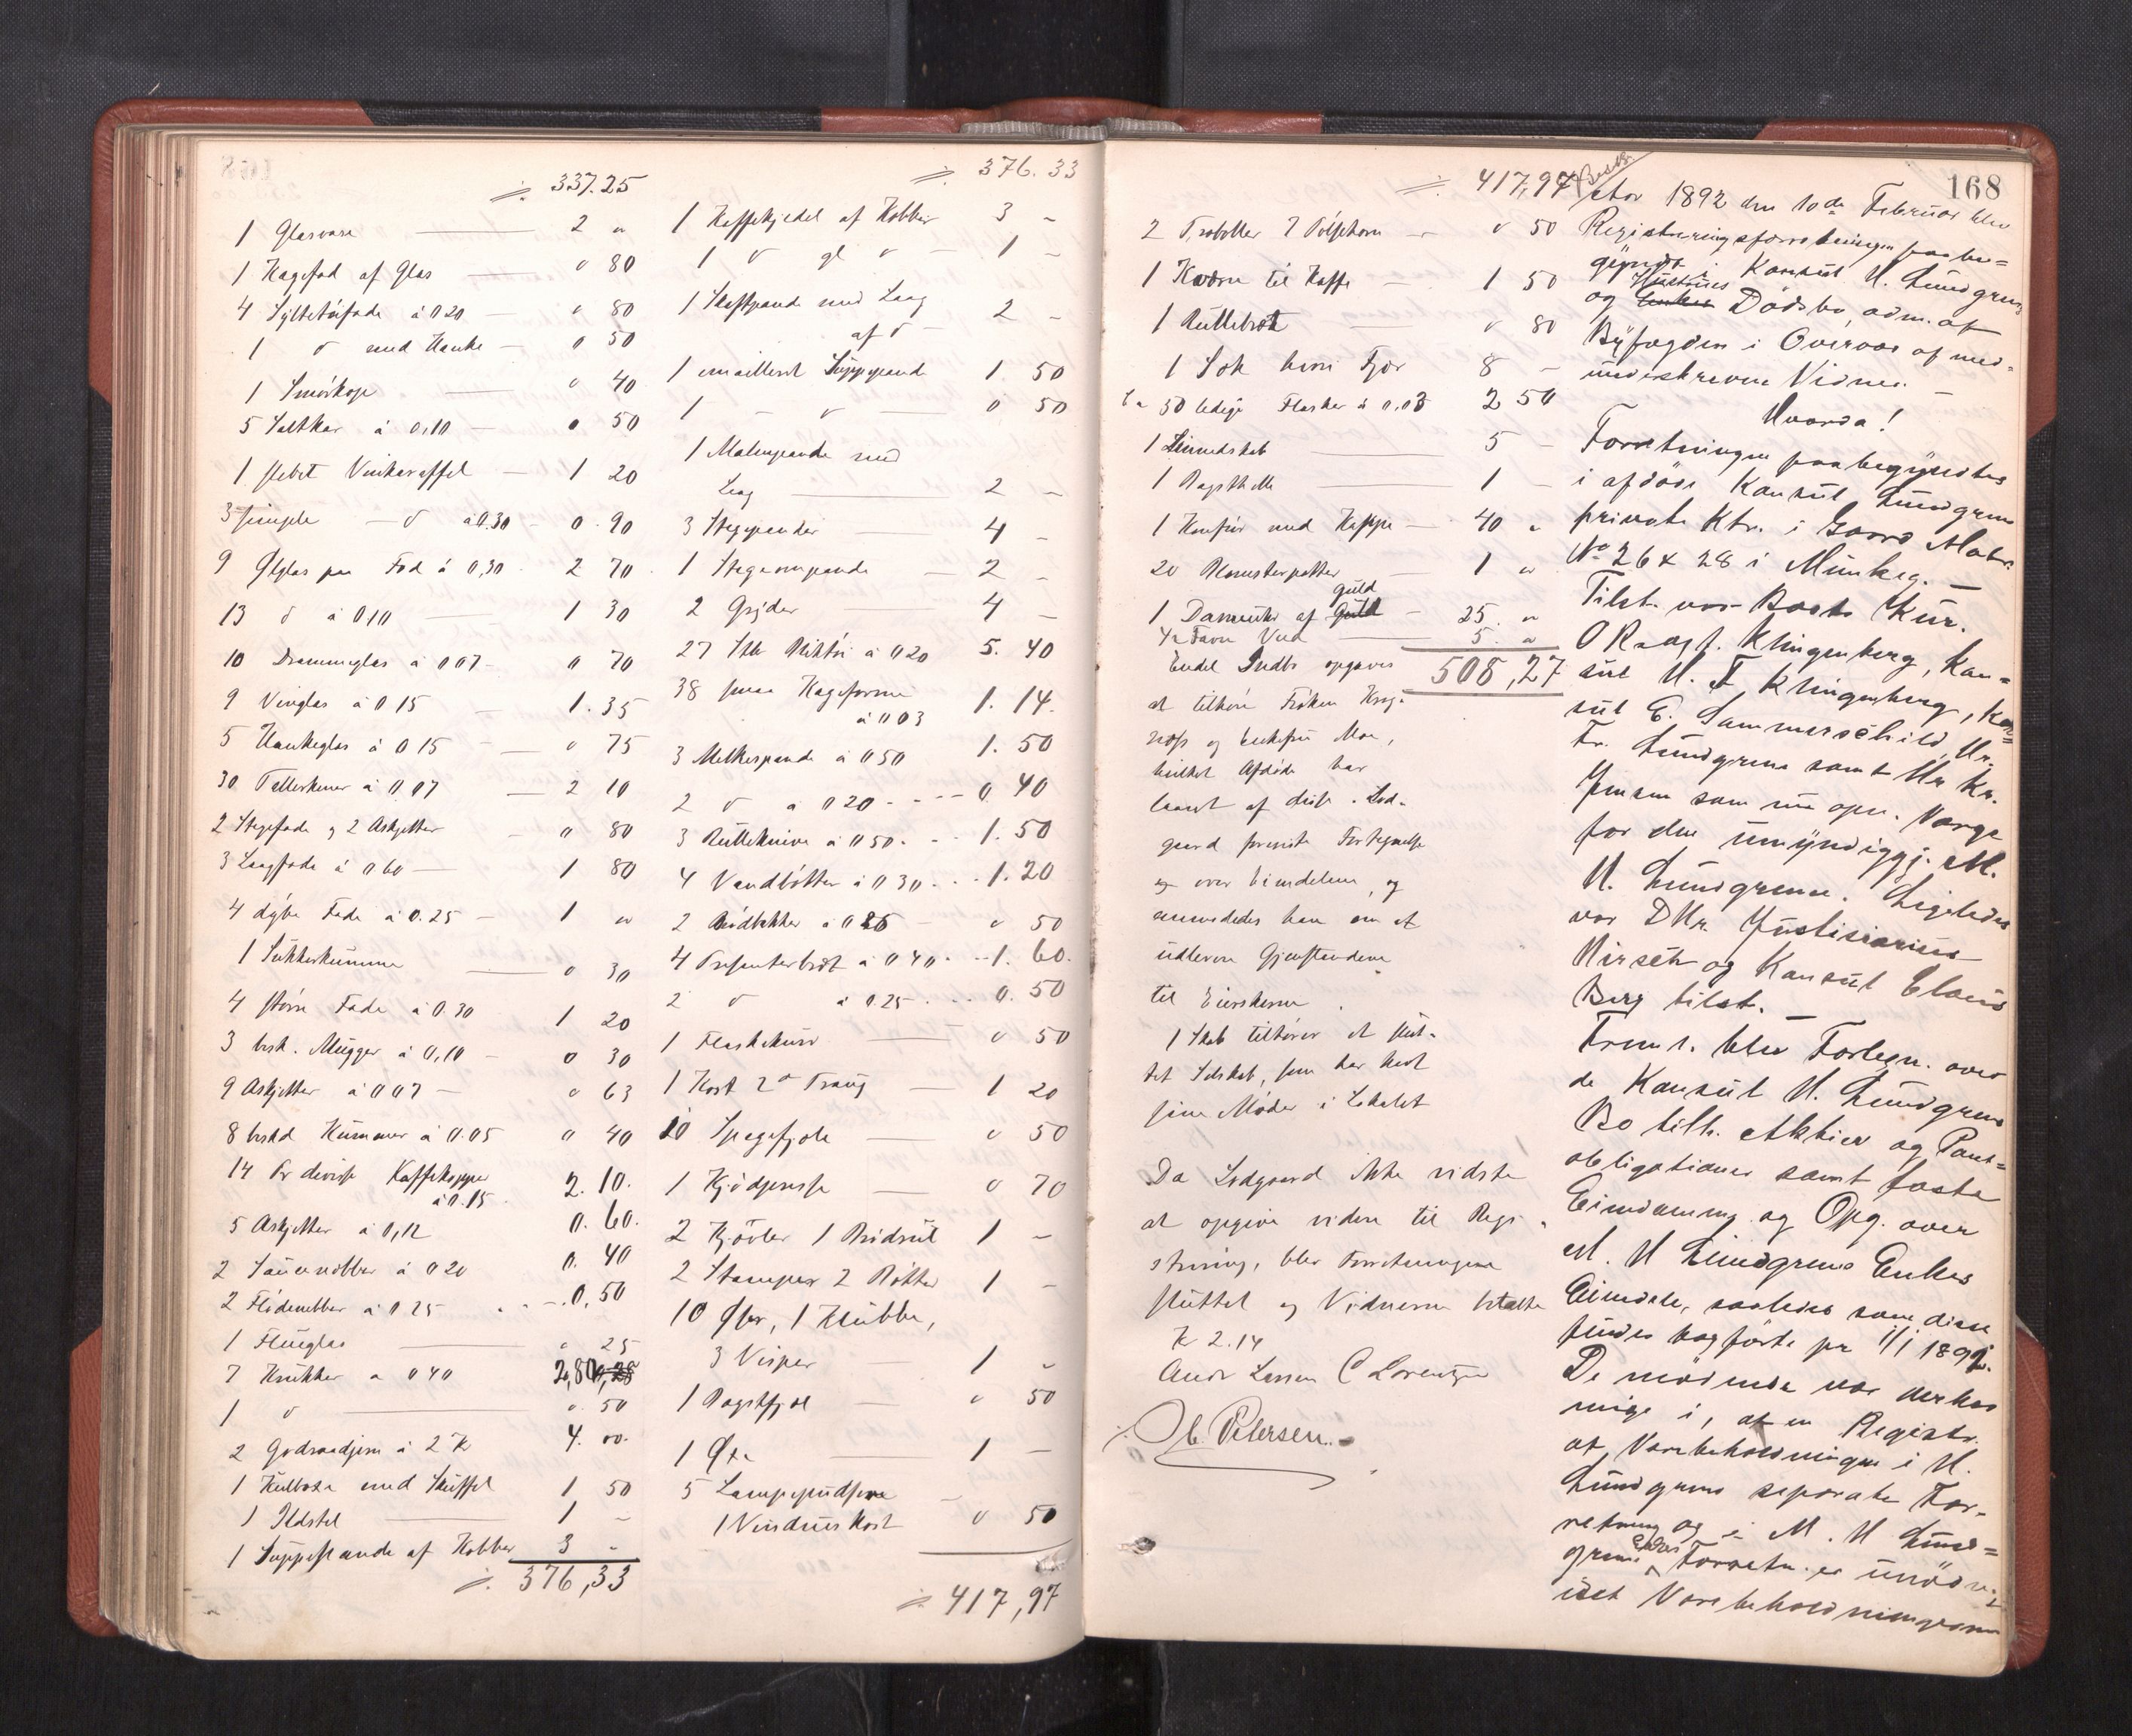 ⁒ 337.25
1 Glasvase — 2 "
1 Kagefad af Glas — " 80
4 Syltetöifade à 0 20 — " 80
1 do med Hanke — 0 50
1 Smörkop — " 40
5 Saltkar à 0.10 — 0 50
1 slebet Vinkaraffel — 1 20
3 simple — do à 0.30 - 0.90
9 Ølglas paa Fod à 0,30 - 2 70
13 do à 0 10 — 1 30
10 Dramseglas à 0 07 - 0 70
9 Vinglas à 0 15 — 1.35
5 Hankeglas à 0 15 — " 75
30 Tallerkener à 0 07 — 2 10
2 Stegefade og 2 Askjetter - 0 80
3 Laagfade à 0 60 — 1 80
4 dybe Fade à 0.25 - 1 "
1 Sukkerkumme — 0 30
4 större Fade à 0.30 1 20
3 besk. Mugger à 0,10 - 0 30
9 Askjetter à 0 07 - " 63
8 beskd Kummer à 0.05 0 40
14 Pr diverse Kaffekopper
à 0.15 2.10.
5 Askjetter à 0,12 0.60.
2 Saucenebber à 0 20 0.40
2 Flödenebber à 0 25 - 0,50
1 Flueglas — " 25
7 Krukker à 0 40 2,80
1 do — 0.50
2 Godraadjern à 2 K 4.00.
1 Kulboxe med Skuffel 1 50
1 Ildstel — 1 -
1 Suppepande af Kobber 3 -
⁒ 376,33
⁒ 376.33
1 Kaffekjedel af Kobber 3 -
1 do gl do — 1 -
1 Kastpande med Laag
af do — 2 -
1 emailleret Suppepande 1 50
1 - do — 0 50
1 Malmpande med
Laag — 2 -
3 Stegepander — 4 -
1 Stegeovnpande — 2 -
2 Gryder — 4 -
27 Stk Bliktöi à 0 20 5.40
38 smaa Kageforme
à 0 03 1.14.
3 Melkespande à 0 50 1.50
2 do à 0 20 - - - 0.40
3 Rulleknive à 0 50 - - 1.50
4 Vandbötter à 0 30 - - 1.20
2 Brödbakker à 0 25 - " 50
4 Presenterbret à 0 40 - - 1.60.
2 do à 0 25 - - 0.50
1 Flaskekurv — " 50
1 Kost 2 do Traug — 1 20
10 Spegefjele — " 50
1 Kjödpresse — " 70
2 Kjövler 1 Brödrul 1 -
2 Stamper 2 Bötter 1 -
10 Øser, 1 Klubbe,
3 Visper 1 -
1 Bagstfjæl — " 50
1 Øxe — 1 -
5 Lampepudsere -
1 Vindueskost " 50
⁒ 417,97
⁒ 417,97
2 Traboller 2 Pölsehorn - " 50
1 Kværn til Kaffe — 1 50
1 Rullebræt — " 80
1 Sæk hvori Fjær 8 -
Ca 50 ledige Flasker à 0.05 2 50
1 Linnedskab — 5 -
1 Bagsthelle — 1 -
1 Komfur med Kappe — 40 "
20 Blomsterpotter — 1 "
guld
1 Dameuhr af Guld - 25. "
1/2 Favn Ved — 5. "
508,27
Endel Indbo opgaves
at tilhöre Fröken Krog-
næss og Enkefru Moe,
hvilket Afdöde har
laant af disse. Lod-
gaard foreviste Fortegnelse
over Eiendelene, og
anmodedes han om at
udlevere Gjenstandene
til Eierskerne.
1 Skab tilhörer et slut-
tet Selskab, som har havt
sine Möder i Lokalet
Da Lodgaard ikke vidste
at opgive videre til Regi-
strering, blev Forretningen
sluttet og Vidnerne betalte
K 2.14
Andr Larsen C Lorentzen
Ob. Petersen.
168
Aar 1892 den 10de Februar blev
Registreringsforretningen paabe=
gyndt i Konsul H. Lundgrens
Hustrues
og Enkes Dödsbo, adm. af
Byfogden i Overvær af med-
underskrevne Vidner. —
Hvorda!
Forretningen paabegyndtes
i afdöde Konsul Lundgrens
private Ktr. i Gaard Matr.
No 26 & 28 i Munkeg. —
Tilst. var Boets Kur.
O R.sagf. Klingenberg, Kon=
sul H. F. Klingenberg, Kon=
sul E. Sommerschild, Hr.
Fr. Lundgreen samt Hr Kr.
Jensen som ny opn. Værge
for den umyndiggj. M.
H. Lundgreen. Ligeledes
var DHr. Justisiarius
Hirsch og Konsul Claus
Berg tilst. —
Freml. blev Fortegn. over
de Konsul H. Lundgrens
Bo tilh. Aktier og Pant=
obligationer samt faste
Eiendomme og Opg. over
M. H Lundgrens Enkes
Eiendele, saaledes som disse
findes bogförte pr 1/1 1892.
De mödende var derhos
enige i, at en Registr.
af Varebeholdningen i H.
Lundgrens separate For-
retning og i M. H Lund=
grens Enkes Forretn. er unödv.,
idet Varebeholdningerne